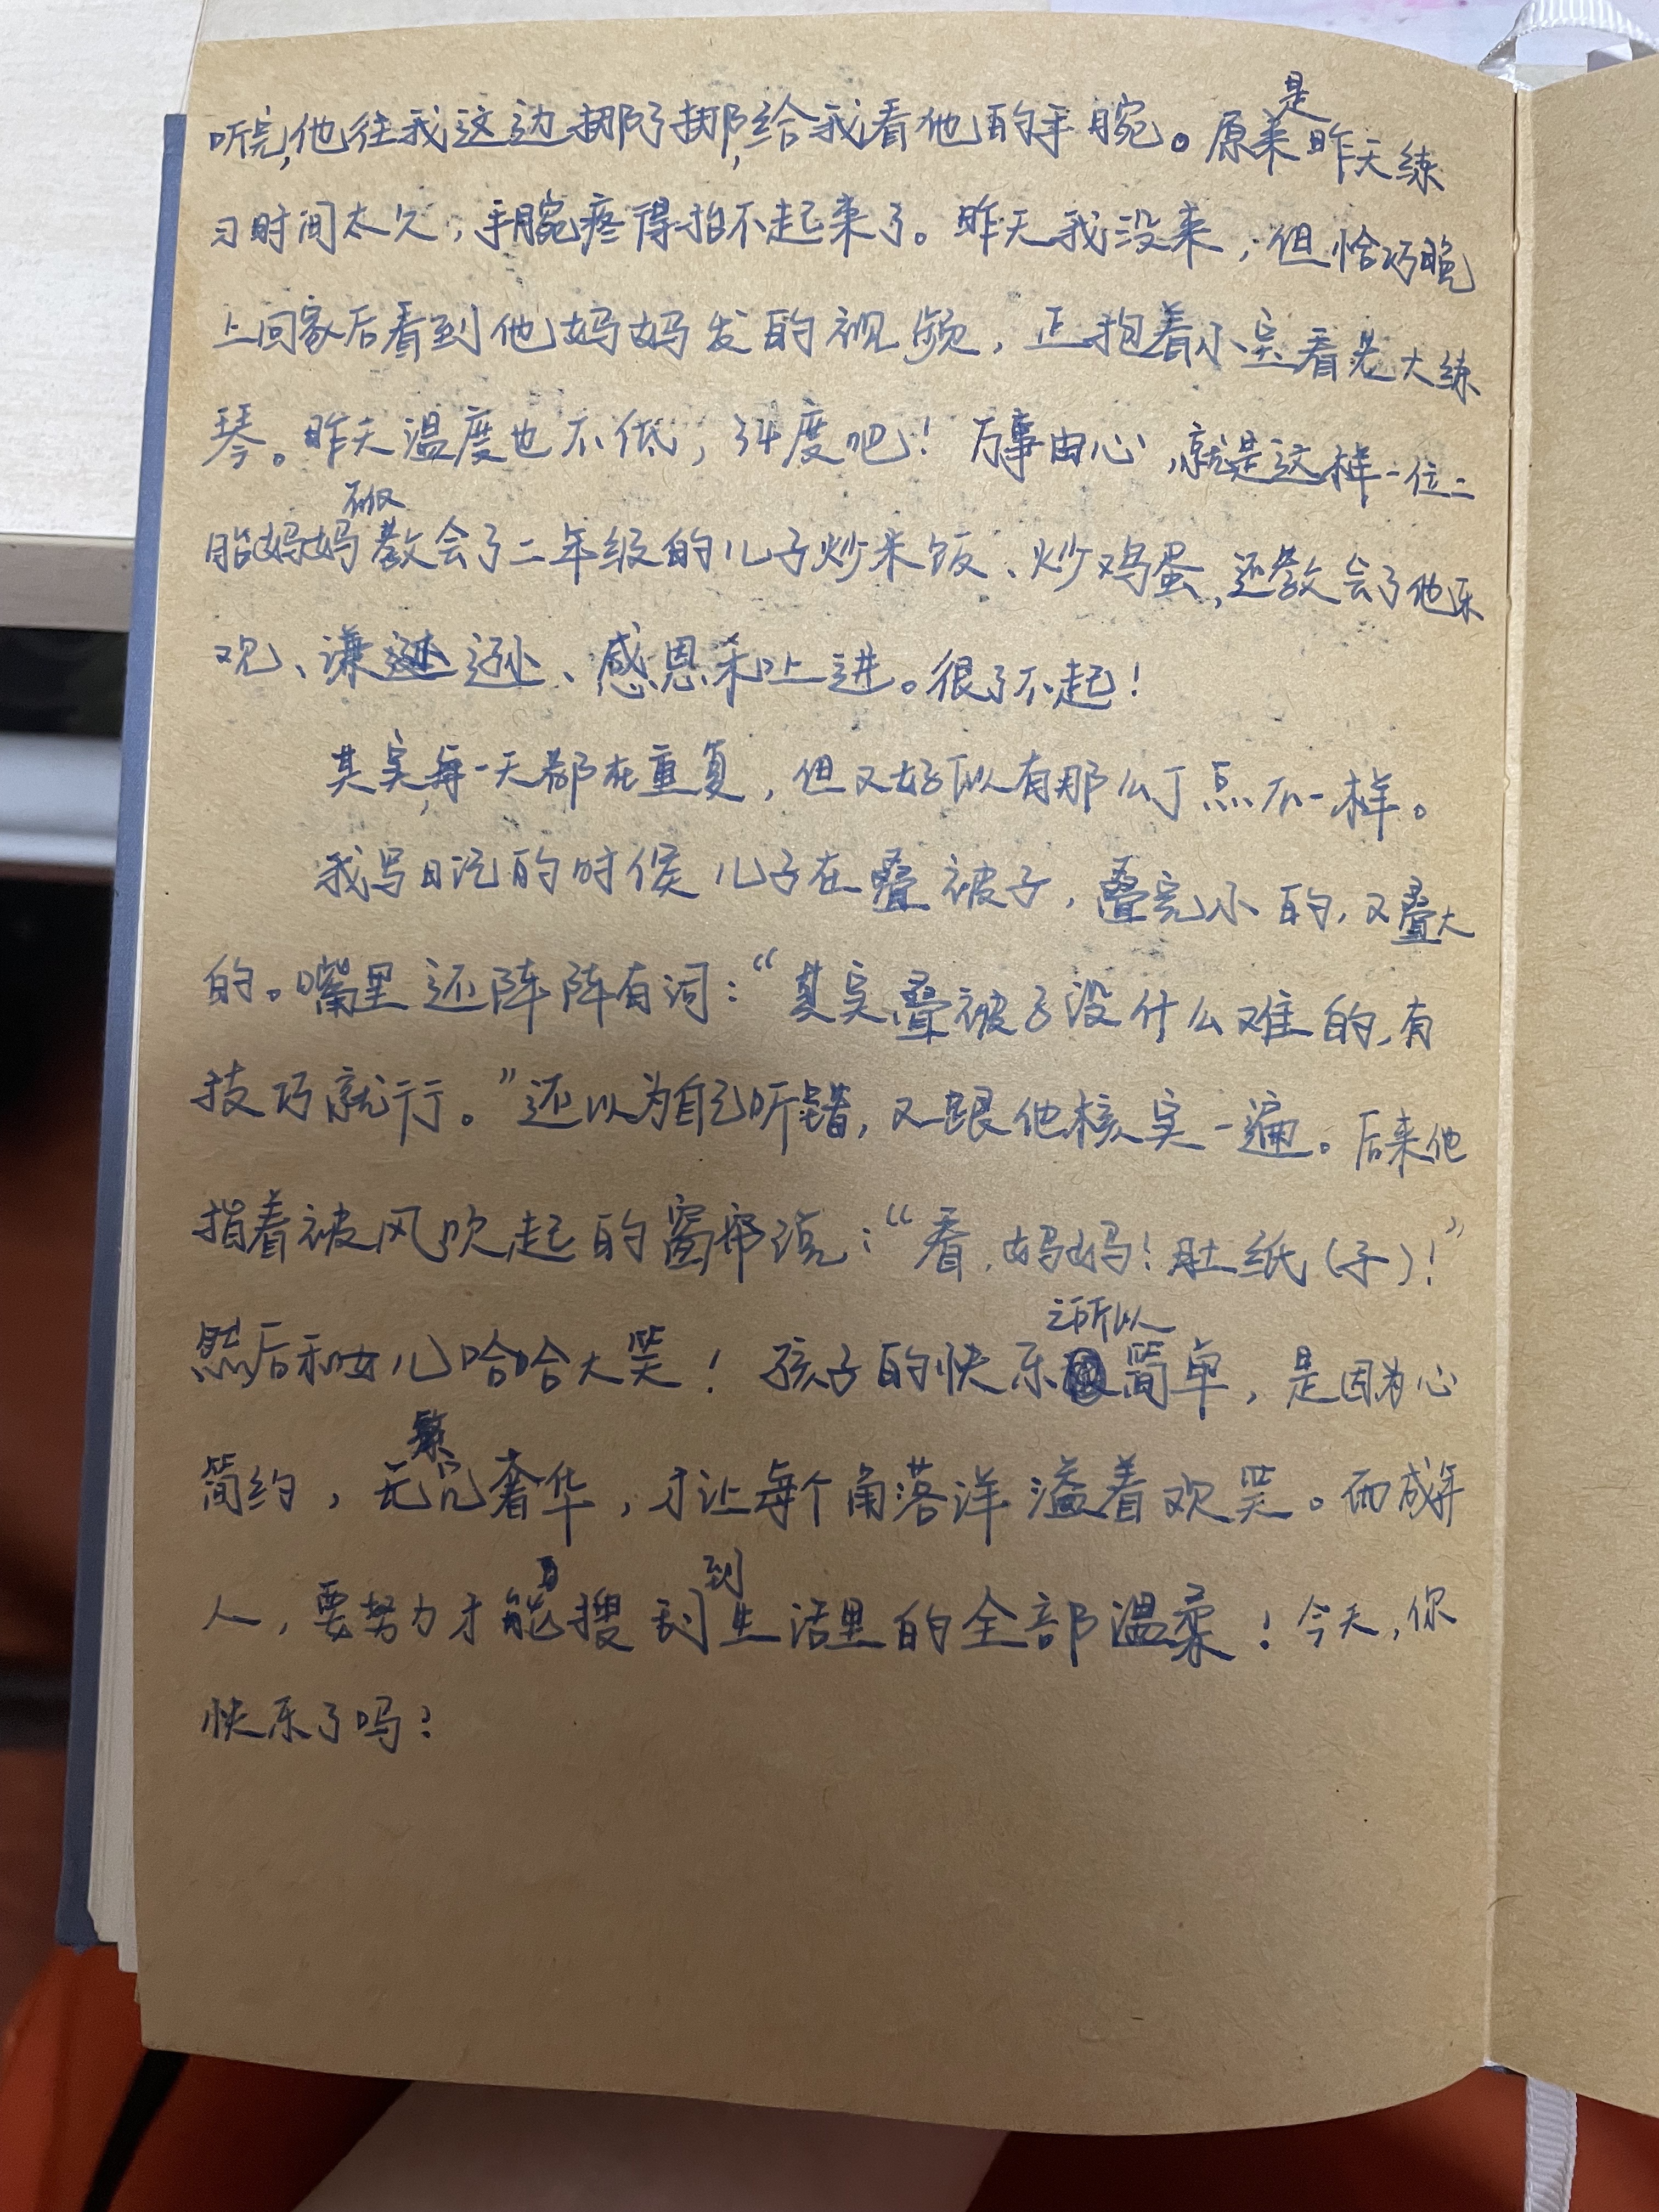 听完,他往我这边挪了挪,给我看他的手腕。原来是昨天练
习时间太久,手腕疼得抬不起来了。昨天我没来,但恰巧晚
上回家后看到他妈妈发的视频,正抱着小宝看老大练
琴。昨天温度也不低,34度吧!万事由心,就是这样一位二
胎妈妈不仅教会了二年级的儿子炒米饭、炒鸡蛋,还教会了他乐
观、谦逊、感恩和上进。很了不起!
其实,每一天都在重复,但又好似有那么丁点不一样。
我写日记的时候儿子在叠被子,叠完小的,又叠大
的。嘴里还阵阵有词:“其实叠被子没什么难的,有
技巧就行。”还以为自己听错,又跟他核实一遍。后来他
指着被风吹起的窗帘说:“看,妈妈!肚纸(子)!”
然后和女儿哈哈大笑!孩子的快乐之所以简单,是因为心
简约,无冗繁奢华,才让每个角落洋溢着欢笑。而成年
人,要努力才能搜刮到生活里的全部温柔!今天,你
快乐了吗?